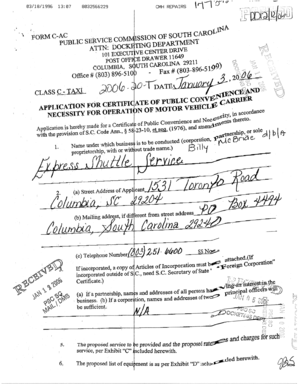 03/10/1996 13:07 8032566229 CMW REPAIRS
FORM C-AC
PUBLIC SERVICE COMMISSION OF SOUTH CAROLINA
ATTN: DOCKETING DEPARTMENT
101 EXECUTIVE CENTER DRIVE
POST OFFICE DRAWER 11649
COLUMBIA, SOUTH CAROLINA 29211
Office # (803) 896-5100 - Fax # (803-896-5199)
CLASS C-TAXI 2006-20-T DATE January 3, 2006
APPLICATION FOR CERTIFICATE OF PUBLIC CONVENIENCE AND
NECESSITY FOR OPERATION OF MOTOR VEHICLE CARRIER
Application is hereby made for a Certificate of Public Convenience and Necessity, in accordance
with the provision of S.C. Code Ann., § 58-23-10, et seq. (1976), and amendments thereto.
1. Name under which business is to be conducted (corporation, partnership, or sole
proprietorship, with or without trade name.) Billy McBride d/b/a
Express Shuttle Service
(a) Street Address of Applicant 1531 Toronto Road
Columbia, SC 29204
(b) Mailing address, if different from street address PO Box 4494
Columbia, South Carolina 29240
(c) Telephone Number (803) 251 6600
If incorporated, a copy of Articles of Incorporation must be attached. (If
incorporated outside of S.C., need S.C. Secretary of State "Foreign Corporation"
Certificate.)
(a) If a partnership, names and addresses of all persons having interest in the
business. (b) If a corporation, names and addresses of two principal officers will
be sufficient.
N/A
RECEIVED
JAN 1 3 2006
PSC SC
MAIL / DMS
The proposed service to be provided and the proposed rates and charges for such
service, per Exhibit "C" included herewith.
6. The proposed list of equipment is as per Exhibit "D" included herewith.